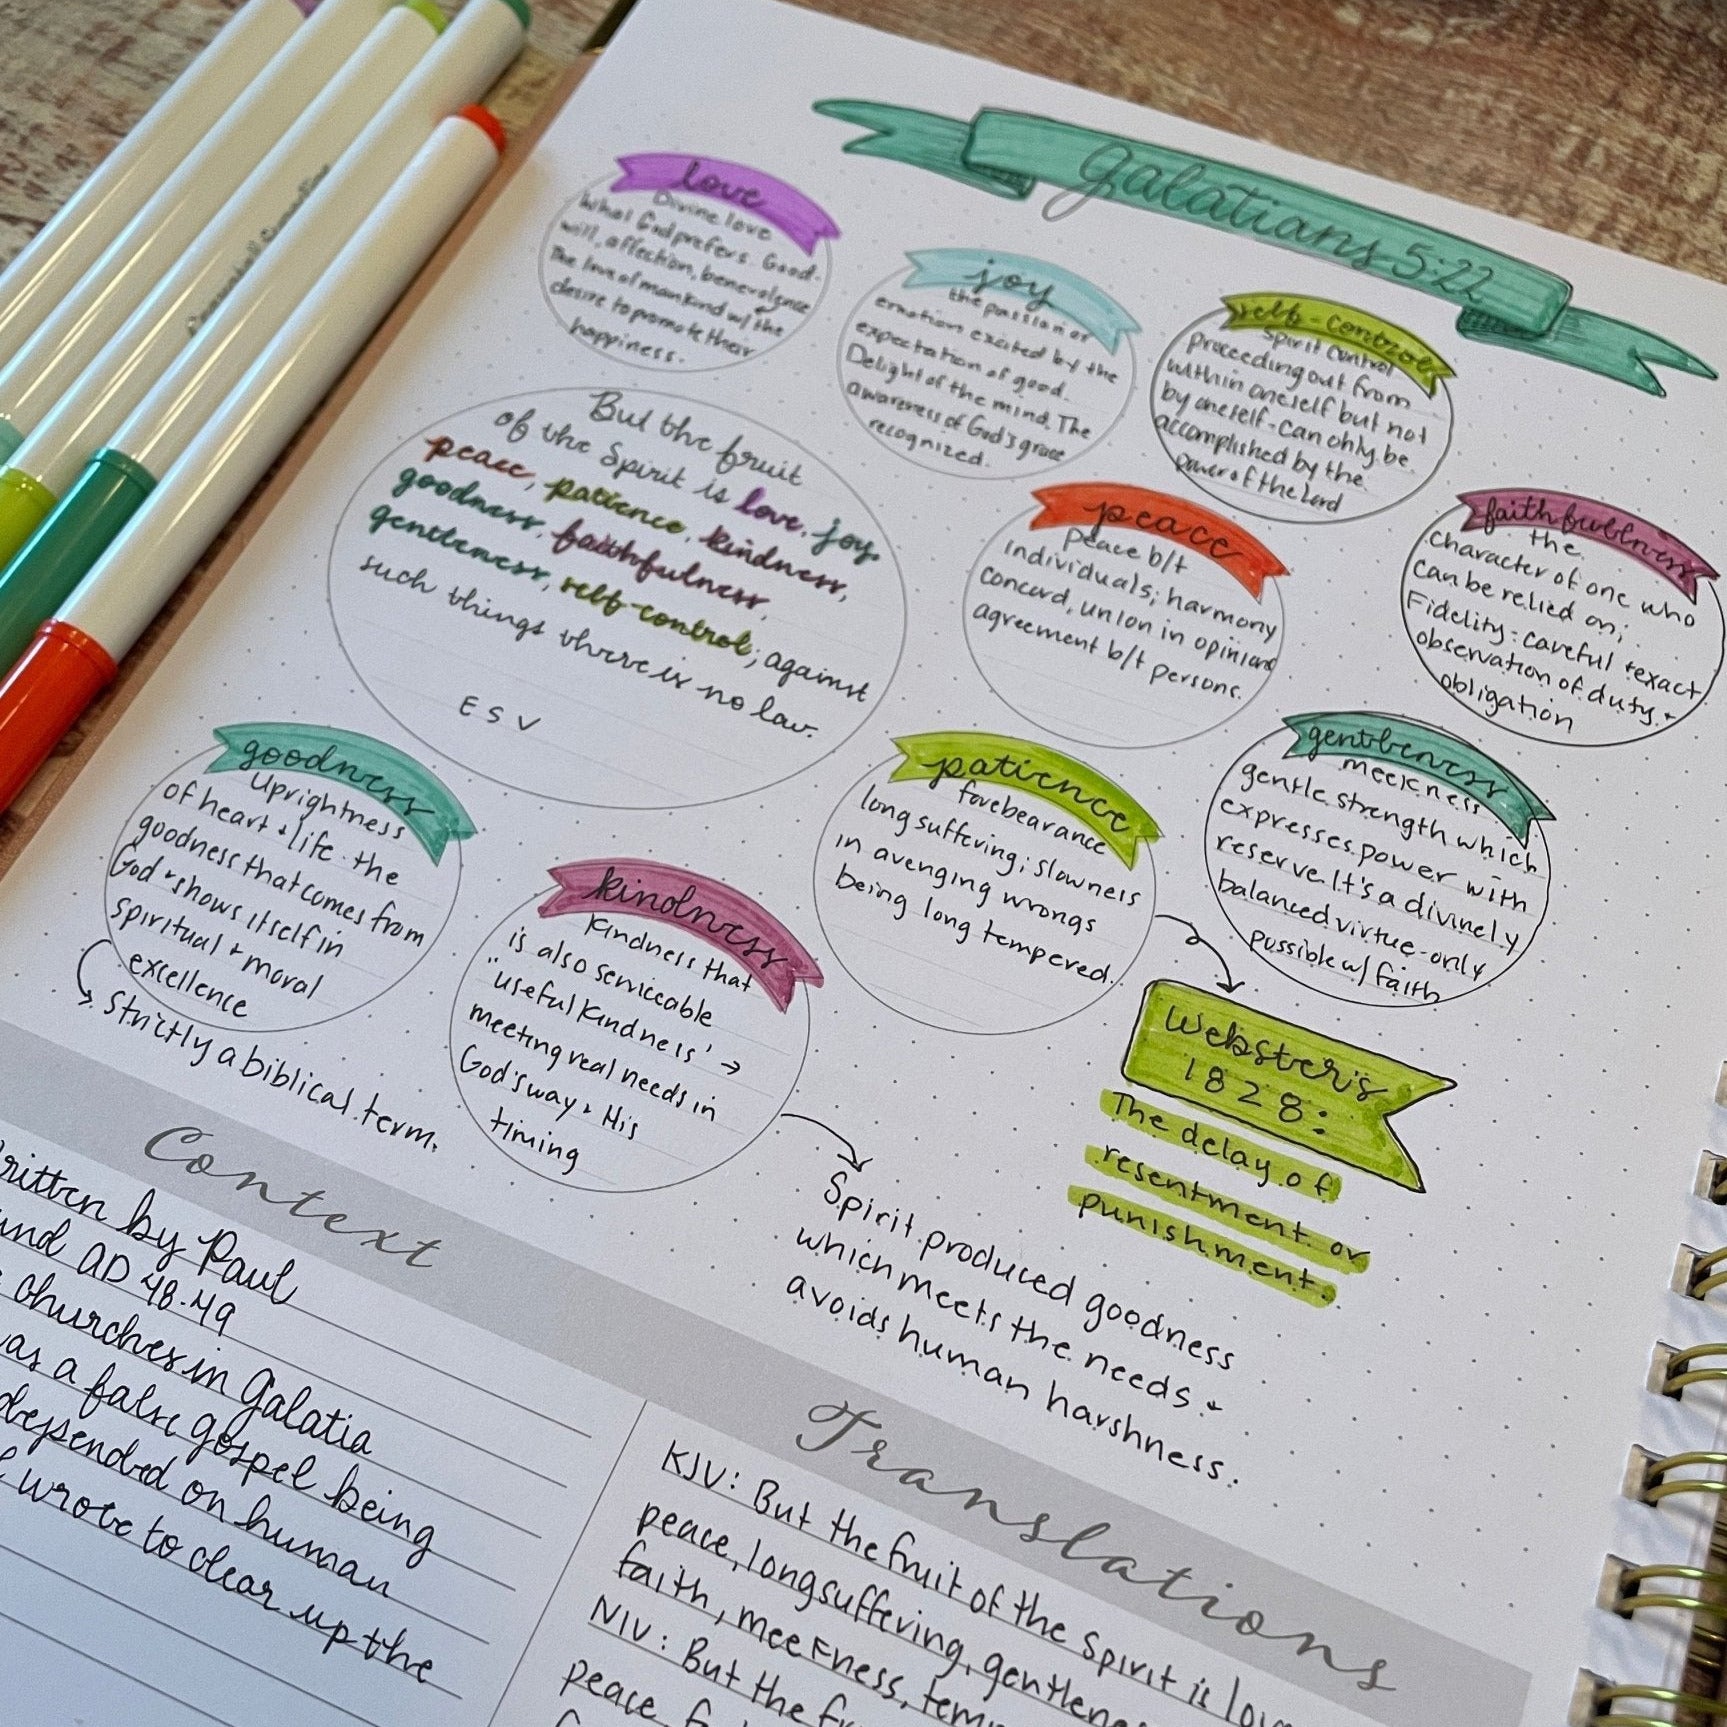 galatians 5:22
love
Divine love
What God prefers. Good-
will, affection, benevolence
The love of mankind w/ the
desire to promote their
happiness.
joy
the passion or
emotion excited by the
expectation of good.
Delight of the mind. The
awareness of God's grace
recognized.
self-control
Spirit control
proceeding out from
within oneself but not
by oneself-can only be
accomplished by the
power of the Lord
But the fruit
of the Spirit is love, joy
peace, patience, kindness,
goodness, faithfulness,
gentleness, self-control; against
such things there is no law.
ESV
peace
Peace b/t
individuals; harmony
concord, union in opinions
agreement b/t persons.
faithfulness
the
character of one who
can be relied on;
Fidelity: careful + exact
observation of duty +
obligation
goodness
Uprightness
of heart + life. the
goodness that comes from
God + shows itself in
spiritual + moral
excellence
strictly a biblical term.
kindness
Kindness that
is also serviceable
"useful kindness' →
meeting real needs in
God's way + His
timing
Spirit produced goodness
which meets the needs +
avoids human harshness.
patience
forebearance
long suffering; slowness
in avenging wrongs
being long tempered.
Webster's
1828:
The delay of
resentment or
punishment.
gentleness
meekness
gentle strength which
expresses power with
reserve. It's a divinely
balanced virtue-only
possible w/ faith
Context
written by Paul
AD 48-49
churches in Galatia
as a false gospel being
depended on human
wrote to clear up the
Translations
KJV: But the fruit of the Spirit is
peace, longsuffering,
faith, meekness,
NIV: But the
peace,